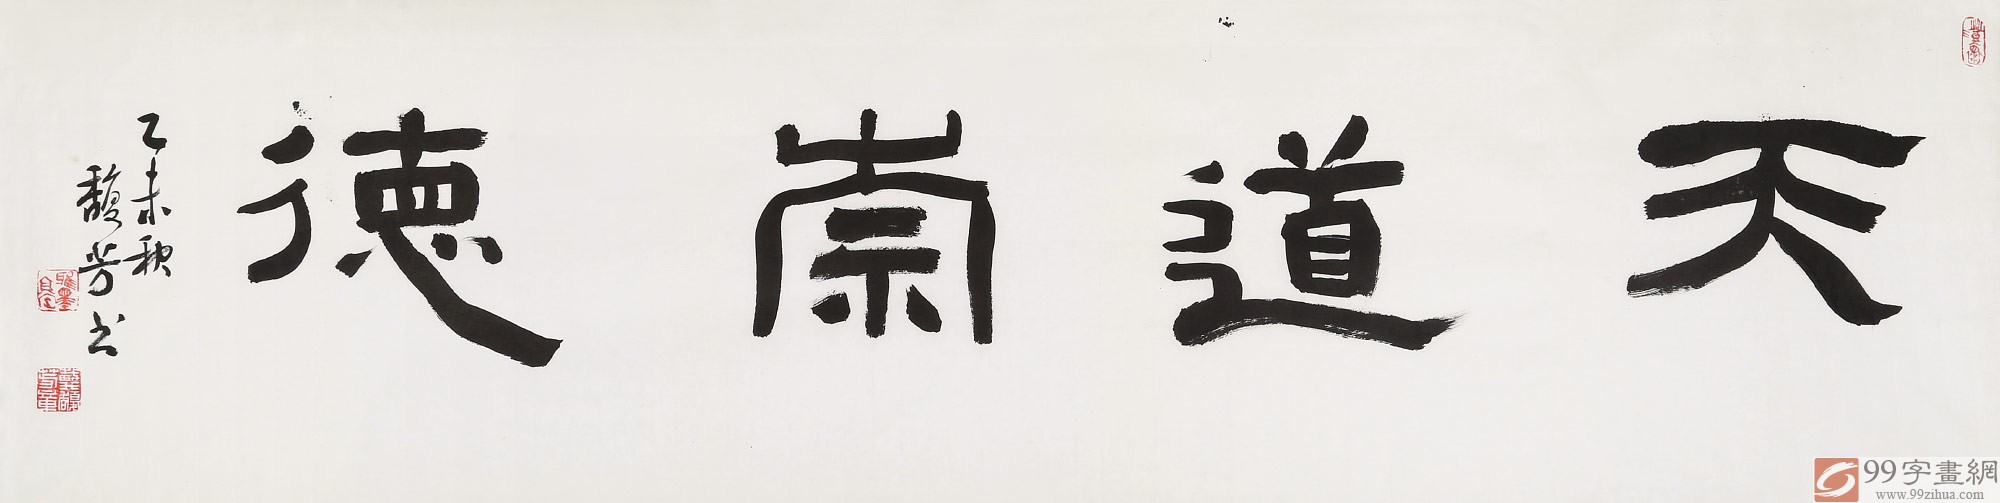 天道崇德
乙未秋
馥芳书
99字畫網
www.99zihua.com